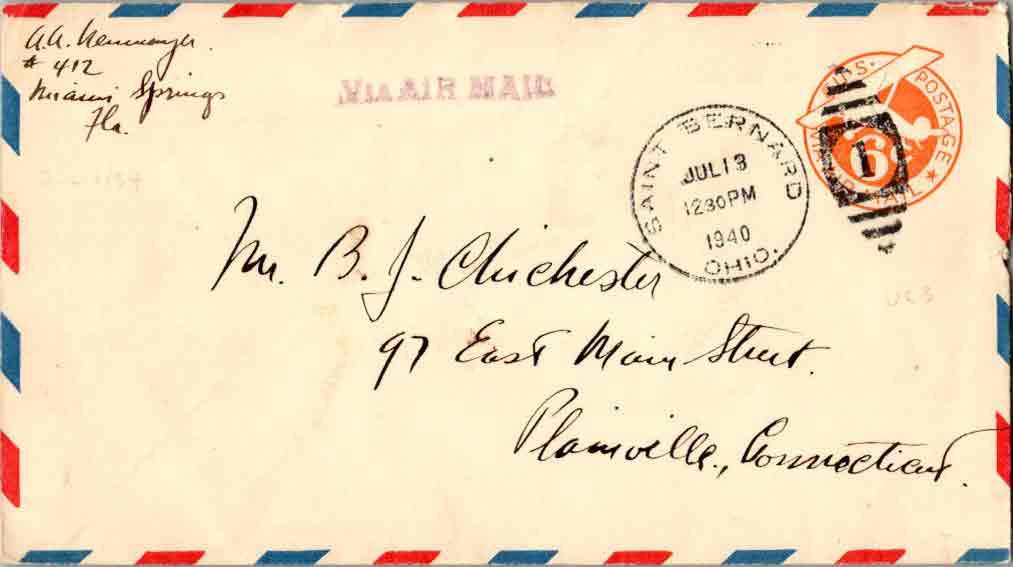 A.A. 
# 412
Miami Springs
Fla.
VIA AIR MAIL
SAINT BERNARD
JUL 13
1230 PM
1940
OHIO.
1
U.S. POSTAGE
6¢
AIR MAIL
Mr. B. J. Chichester
97 East Main Street.
Plainville, Connecticut.
UC3